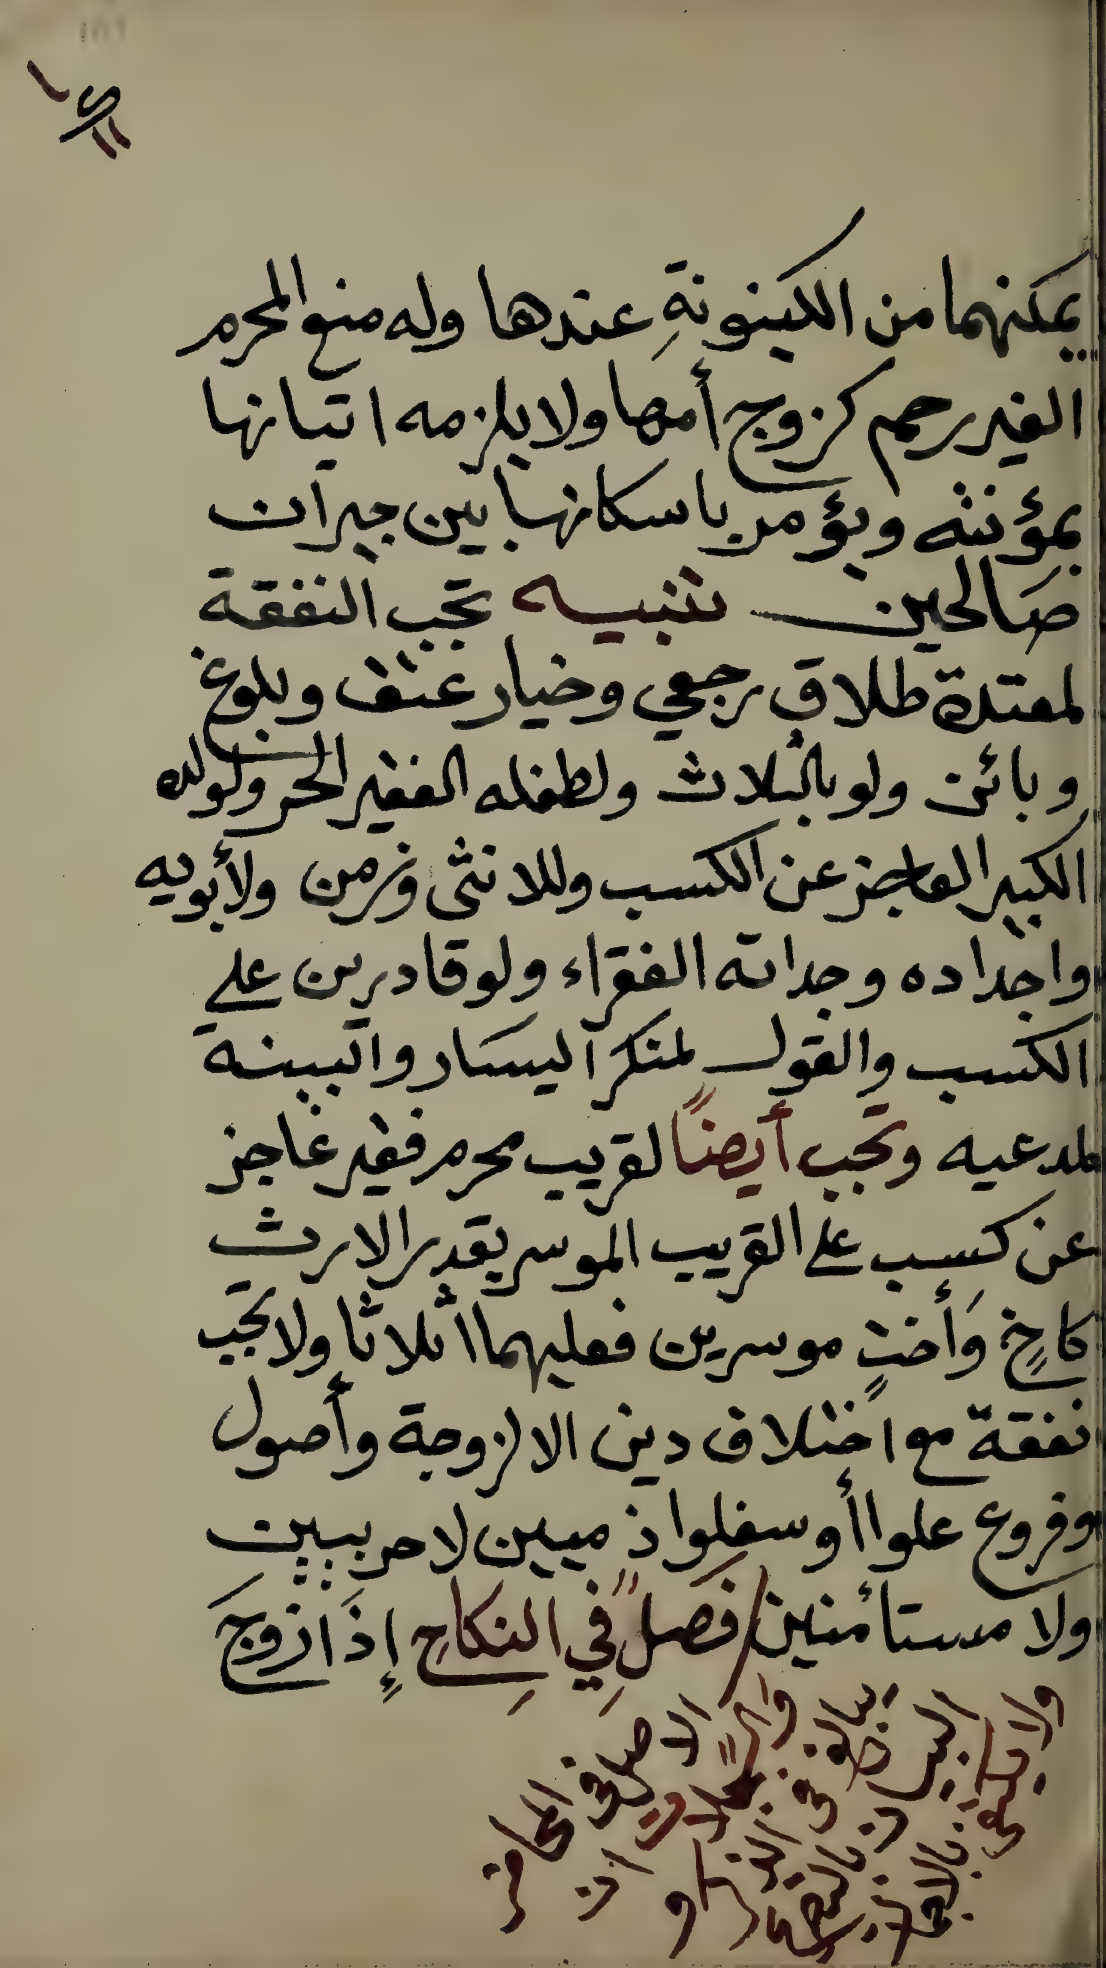 يمكنهما من الكينونةِ عندها وله منع المحرم
الغير رحم كزوج أمها ولا يلزمه اتيانها
بمؤنثه ويؤمر باسكانها بين جيران
صَالحين تنبيه تجب النفقة
لمعتدة طلاق رجعي وخيار عتق وبلوغ
وبائن ولو بالثلاث ولطفله الفقير الحر ولولده
الكبير العاجز عن الكسب وللانثى وزمن ولأبويه
واجداده وجداته الفقراء ولو قادرين على
الكسب والقول لمنكر اليسار والبينة
لمدعيه وتجب أيضاً لقريب محرم فقير عاجز
عن كسب على القريب الموسر بقدر الارث
كاخٍ وَأختٍ موسرين فعليهما اثلاثا ولا تجب
نفقة مع اختلاف دين الا لزوجة وأصول
وفروع علوا أو سفلوا ذميين لا حربيين
ولا مستأمنين فَصلٌ في النِكاحِ إِذَا زوجَ